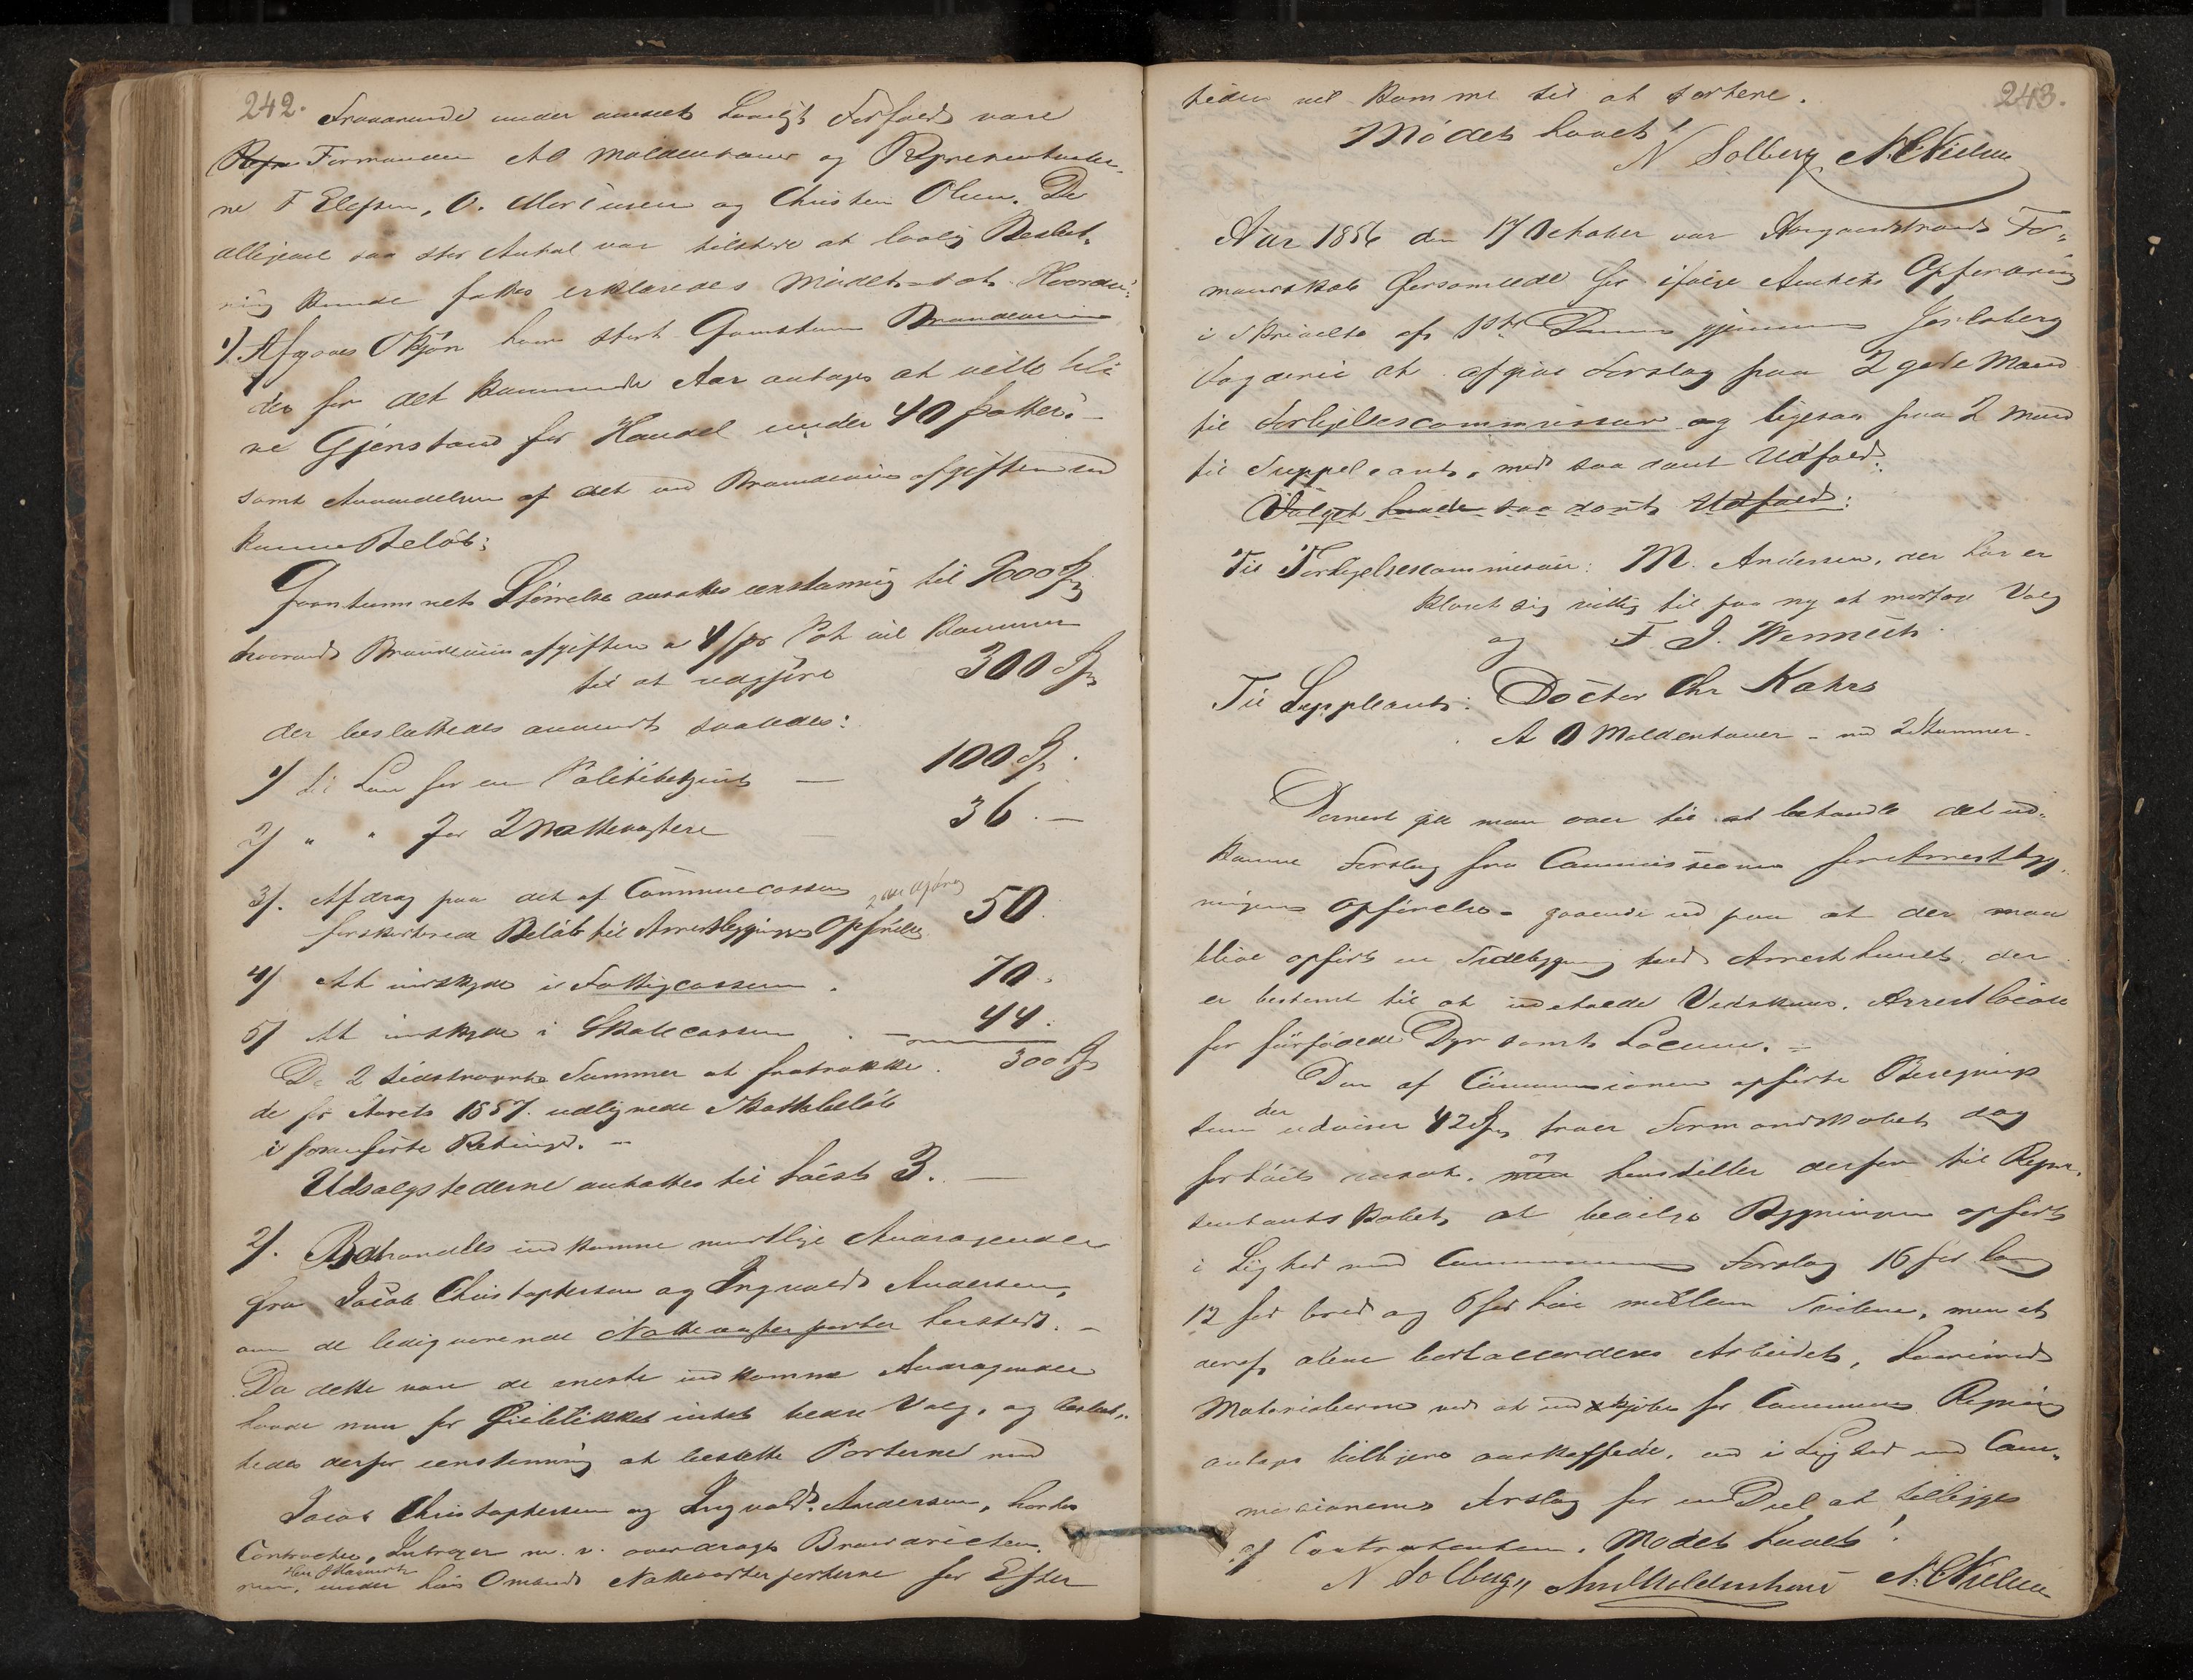 242.
Fraværende under anmeldt Lovligt Forfald vare
Repr Formanden A O Moldenhauer og Repræsentanter-
ne F Ellefsen, O. Mortensen og Christen Olsen. Da
alligevel saa stor Antal var tilstede at lovlig Beslut-
ning kunde fattes erklæredes Mødet sat. Hvorda:
1) Afgaves Skjøn hvor stort Qvantum Brændeviin
der for det kommende Aar antages at ville bli
ve Gjenstand for Handel under 40 Potter.-
samt Anvendelsen af det ved Brændeviinsafgiften ind
komne Beløb:
Qvantummets Størrelse ansattes eenstemmig til 9000 P
hvorved Brændeviinsafgiften a 4 ß pr Pot vil komme
til at udgjøre 300 Spd
der besluttedes anvendt saaledes:
1) til Løn for en Politibetjent — 100 Spd.
2) " " for 2 Nattevægtere — 36. —
3). Afdrag paa det af Communecassen 2det Afdrag
forskuterede Beløb til Arrestbygningens Opførelse 50.
4) At indskyde i Fattigcassen . 70.
5) At indskyde i Skolecassen . — 44.
300 Spd
De 2 sidstnævnte Summer at fratrække
de for Aarets 1857. udlignede Skattebeløb
i foranførte Retning. —
Udsalgstederne ansattes til høist 3. —
2). Behandles indkomne mundtlige Andragender
fra Jacob Christophersen og Ingvald Andersen,
om de ledigværende Nattevægterposter hersteds. —
Da dette vare de eneste indkomne Andragender
havde man for Øieblikket intet bedre Valg, og beslut-
tedes derfor eenstemmig at besætte Posterne med
Jacob Christophersen og Ingvald Andersen, hvortil
Contracter, Instruxer m. v. overdrages Brandvæsten
Herr
under hans Nattevægterposterne for Efter
243.
tiden vil komme til at sortere.
Mødet hævet!
N Solberg N. C. Nielsen
Aar 1856 den 17 October var Aasgaardstrands For-
mandskab forsamlede for ifølge Amtets Opfordring
i Skrivelse af 10de Dennes gjennem Jarlsberg
Fogderie at afgive Forslag paa 2 gode Mænd
til Forligelsescommissair og ligesaa paa 2 Mænd
til Suppleant, med saadant Udfald:
Valget havde saadant Udfald:
Til Forligelsescommissair: M. Andersen, der har er
klæret sig villig til paa ny at modtage Valg
og F. J. Wennech
Til Suppleant: Doctor Chr Kahrs
A O Moldenhauer - med 2 Stemmer.
Dernæst gik man over til at behandle det ind-
komne Forslag fra Commissionen for Arrestbyg-
ningens Opførelse - gaaende ud paa at der maa
blive opført en Sidebygning ved Arresthuset, der
er bestemt til at indeholde Vedskuur, Arrestlocale
for Dyr samt Locum. —
Den af Commissionen opførte Beregnings
sum der udviser 42 Spd troer Formandskabet dog
for høit ansat. men og henstiller derfor til Repræ-
sentantskabet, at bevilge Bygningen opført
i Lighed med Commissionens Forslag 16 fod lang
12 fod bred og 6 fod høi mellem Svillene, men at
deraf alene bortaccorderes Arbeidet, hvorimod
Materialierne ved at indkjøbes for Communens Regning
antages billigere anskaffede, end i Lighed med Com-
missionens Forslag for en Deel at tillægges
af Contrahenten. Mødet hævet!
N Solberg, A O Moldenhauer N. C. Nielsen